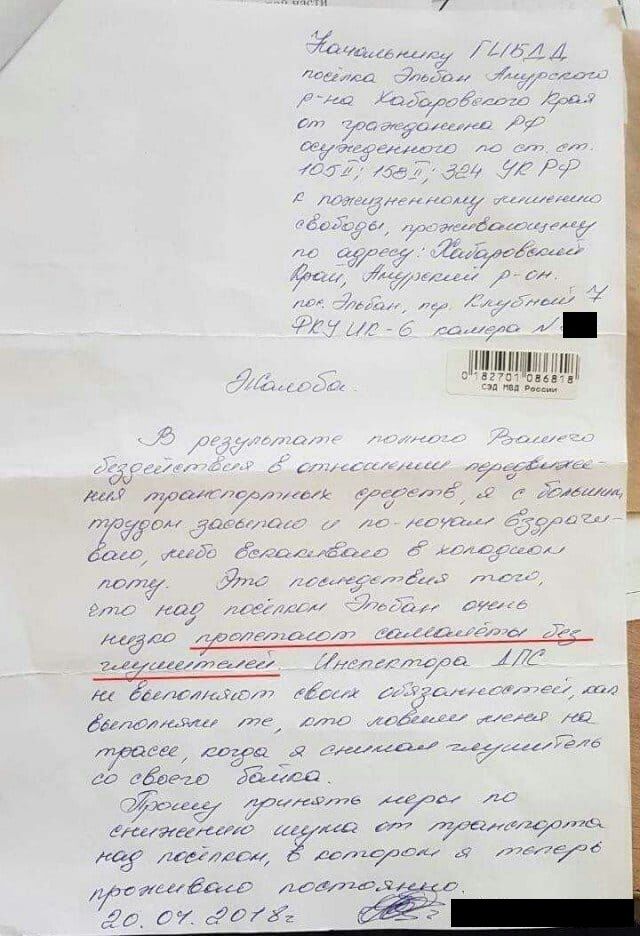 ной части
Начальнику ГИБДД
посёлка Эльбан Амурского
р-на Хабаровского Края
от гражданина РФ
осужденного по ст. ст.
105 II; 158 II; 324 УК РФ
к пожизненному лишению
свободы, проживающему
по адресу: Хабаровский
Край, Амурский р-он.
пос. Эльбан, пер. Клубный 7
ФКУ ИК-6 камера №
0 182701 086818
СЭД МВД России
Жалоба.
В результате полного Вашего
бездействия в отношении передвиже-
ния транспортных средств, я с большим
трудом засыпаю и по-ночам вздраги-
ваю, либо вскакиваю в холодном
поту. Это последствия того,
что над посёлком Эльбан очень
низко пролетают самолёты без
глушителей. Инспектора ДПС
не выполняют своих обязанностей, как
выполняли те, кто ловили меня на
трассе, когда я снимал глушитель
со своего байка.
Прошу принять меры по
снижению шума от транспорта
над посёлком, в котором я теперь
проживаю постоянно.
20.04.2018г